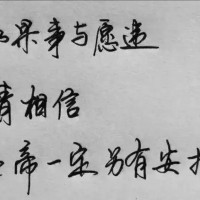 果事与愿违
请相信
帝一定另有安